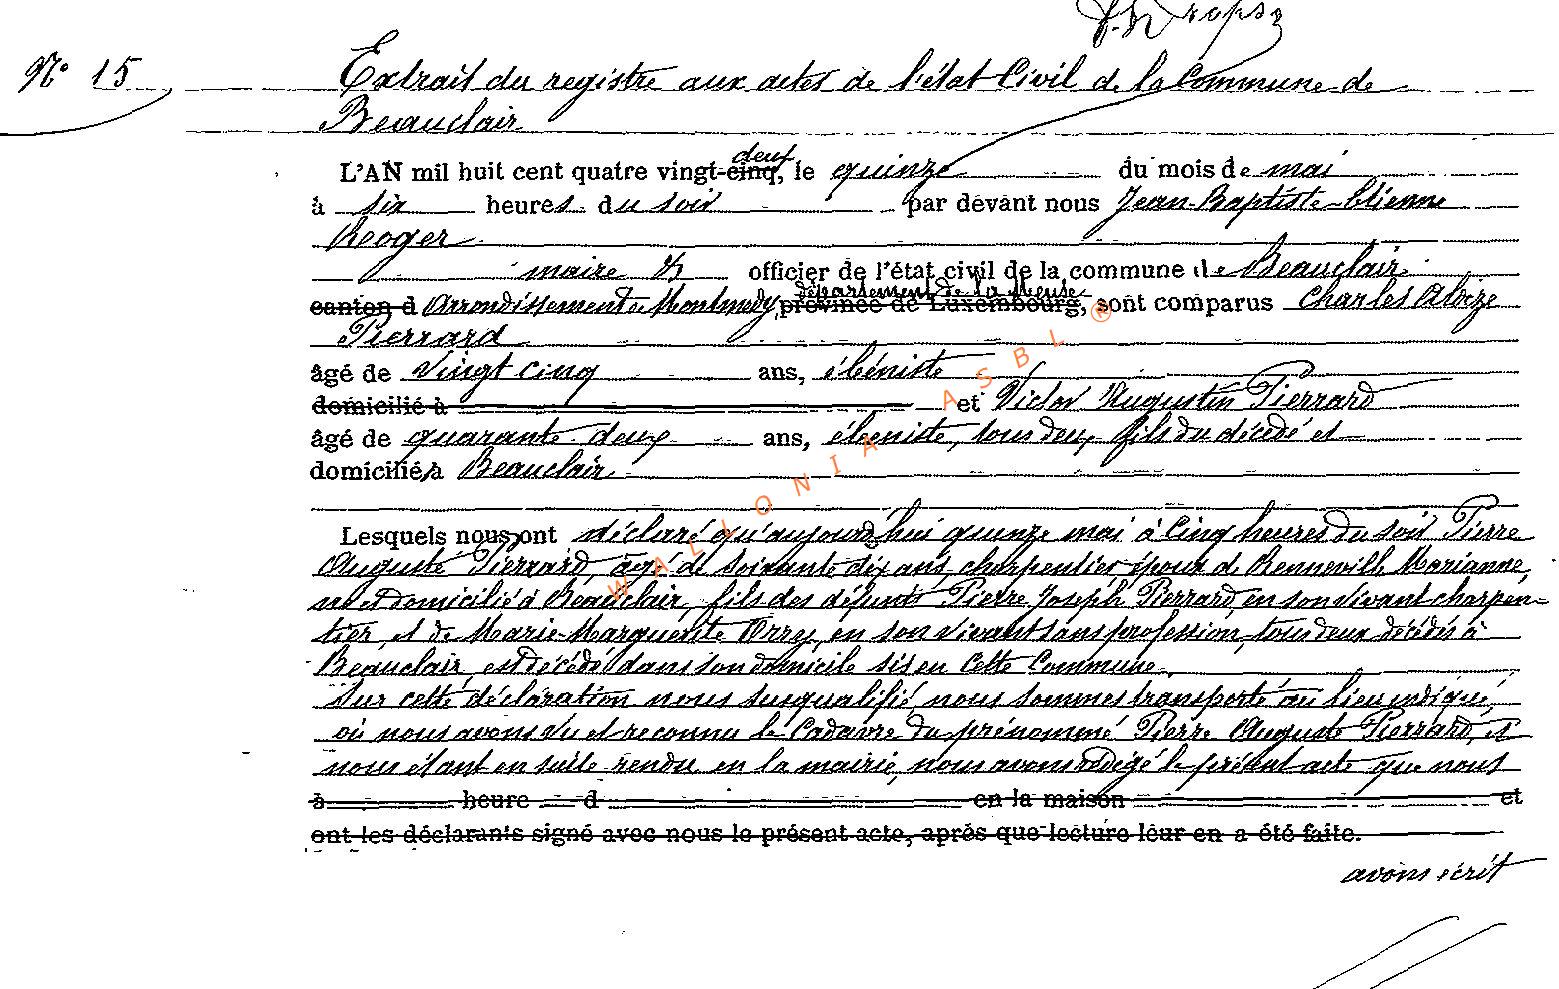 N° 15
Extrait du registre aux actes de l'état Civil de la Commune de
Beauclair
L'AN mil huit cent quatre vingt-cinq, deux le quinze du mois de mai
à six heures du soir par devant nous Jean-Baptiste-Etienne
Reoger
maire & officier de l'état civil de la commune de Beauclair
canton d arrondissement de Montmedy, province de Luxembourg, département de la Meuse sont comparus Charles Aloïze
Pierrard
âgé de vingt cinq ans, ébéniste
domicilié à et Victor Augustin Pierrard
âgé de quarante deux ans, ébeniste, tous deux fils du décédé et
domiciliés à Beauclair
Lesquels nous ont déclaré qu'aujourd'hui quinze mai à Cinq heures du soir Pierre
Auguste Pierrard, âgé de soixante dix ans, charpentier époux de Renneville Marianne,
né et domicilié à Beauclair, fils des défunts Pierre Joseph Pierrard, en son vivant charpen-
tier, et de Marie-Marguerite Orrey, en son vivant sans profession, tous deux décédés à
Beauclair, est décédé dans son domicile sis en cette Commune.
Sur cette déclaration nous susqualifié, nous sommes transporté au lieu indiqué,
où nous avons vu et reconnu le Cadavre du prénommé Pierre Auguste Pierrard, et
nous étant en suite rendu en la mairie, nous avons rédigé le présent acte que nous
à heure d en la maison et
ont les déclarants signé avec nous le présent acte, après que lecture leur en a été faite.
avons écrit
WALLONIA ASBL ®